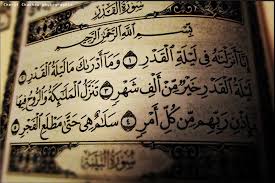 Cherif Chakers photography
سُورَةُ القَدۡرِ
بِسۡمِ ٱللَّهِ ٱلرَّحۡمَٰنِ ٱلرَّحِيمِ
إِنَّآ أَنزَلۡنَٰهُ فِي لَيۡلَةِ ٱلۡقَدۡرِ ١ وَمَآ أَدۡرَىٰكَ مَا لَيۡلَةُ ٱلۡقَدۡرِ ٢
لَيۡلَةُ ٱلۡقَدۡرِ خَيۡرٞ مِّنۡ أَلۡفِ شَهۡرٖ ٣ تَنَزَّلُ ٱلۡمَلَٰٓئِكَةُ وَٱلرُّوحُ فِيهَا
بِإِذۡنِ رَبِّهِم مِّن كُلِّ أَمۡرٖ ٤ سَلَٰمٌ هِيَ حَتَّىٰ مَطۡلَعِ ٱلۡفَجۡرِ ٥
سُورَةُ البَيِّنَةِ